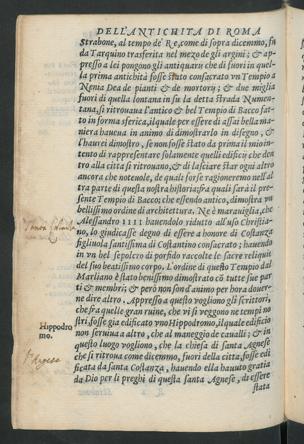 DELL'ANTICHITA DI ROMA
Strabone, al tempo de' Re, come di sopra dicemmo, fu
da Tarquino trasferita nel mezo de gli argini; & ap-
presso a lei pongono gli antiquarii che di fuori in quel-
la prima antichità fosse stato consacrato vn Tempio a
Nenia Dea de pianti & de mortorij; & due miglia
fuori di quella lontana in su la detta strada Numen-
tana, si ritrouaua l'antico & bel Tempio di Bacco fat-
to in forma sferica, il quale per essere di assai bella ma-
niera haueua in animo di dimostrarlo in disegno, &
l'haurei dimostro, se non fosse stato da prima il mio in-
tento di rappresentare solamente quelli edificij che den
tro alla citta si ritrouano, & di lasciare star ogni altro
ancora che noteuole, de quali forse ragioneremo nell'al
tra parte di questa nostra historia, fra quali sarà il pre-
sente Tempio di Bacco; che essendo antico, dimostra vn
bellissimo ordine di architettura. Ne è marauiglia, che
Alessandro IIII hauendolo ridutto all'uso Christia-
no, lo giudicasse degno di essere a honore di Costanza
figliuola santissima di Costantino consacrato; hauendo
in vn bel sepolcro di porfido raccolte le sacre reliquie
del suo beatissimo corpo. L'ordine di questo Tempio dal
Marliano è stato benissimo dimostrato cō tutte sue par
ti & membri; & però non son d'animo per hora douer-
ne dire altro. Appresso a questo vogliono gli scrittori,
che fra quelle gran ruine, che vi si veggono ne tempi no
Hippodro
mo.
stri, fosse gia edificato vno Hippodromo, il quale edificio
non seruiua a altro, che al maneggio de caualli; & in
questo luogo vogliono, che la chiesa di santa Agnese
che si ritroua come dicemmo, fuori della citta, fosse edi
ficata da santa Costanza, hauendo ella hauuto gratia
da Dio per li preghi di questa santa Agnese, di essere
stata